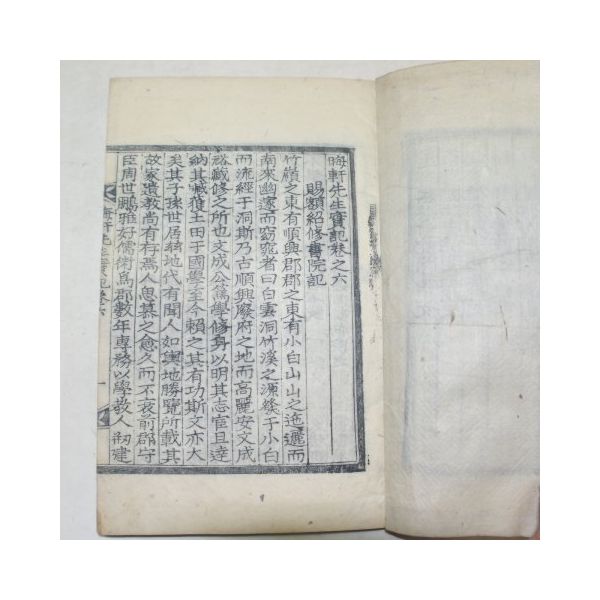 晦軒先生實記卷之六
賜額紹修書院記
竹嶺之東有順興郡郡之東有小白山山之迤邐而
南來幽邃而窈窕者曰白雲洞竹溪之源發于小白
而流經于洞斯乃古順興廢府之地而高麗安文成
裕藏修之所也文成公爲學修身以明其志宦且達
納其臧獲土田于國學至今賴之其有功斯文亦大
矣其子孫世居玆地代有聞人如輿地勝覽所載其
故家遺敎尙有存焉人思慕之愈久而不衰前郡守
臣周世鵬雅好儒術爲郡數年專務以學敎人剏建
晦軒先生實記卷六
一